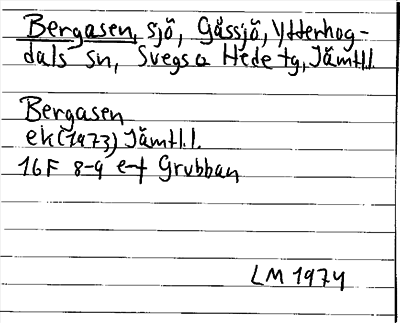 Bergasen, sjö, Gåssjö, Ytterhog-
dals sn, Svegs o Hede tg, Jämtl.l.
Bergasen
ek (1973) Jämtl.l.
16F 8-9 e-f Grubban
LM 1974